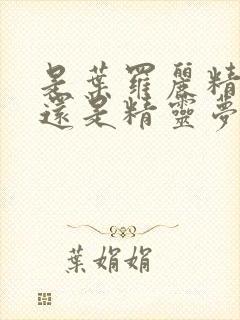 是葉羅麗精
還是精靈夢
葉娟娟